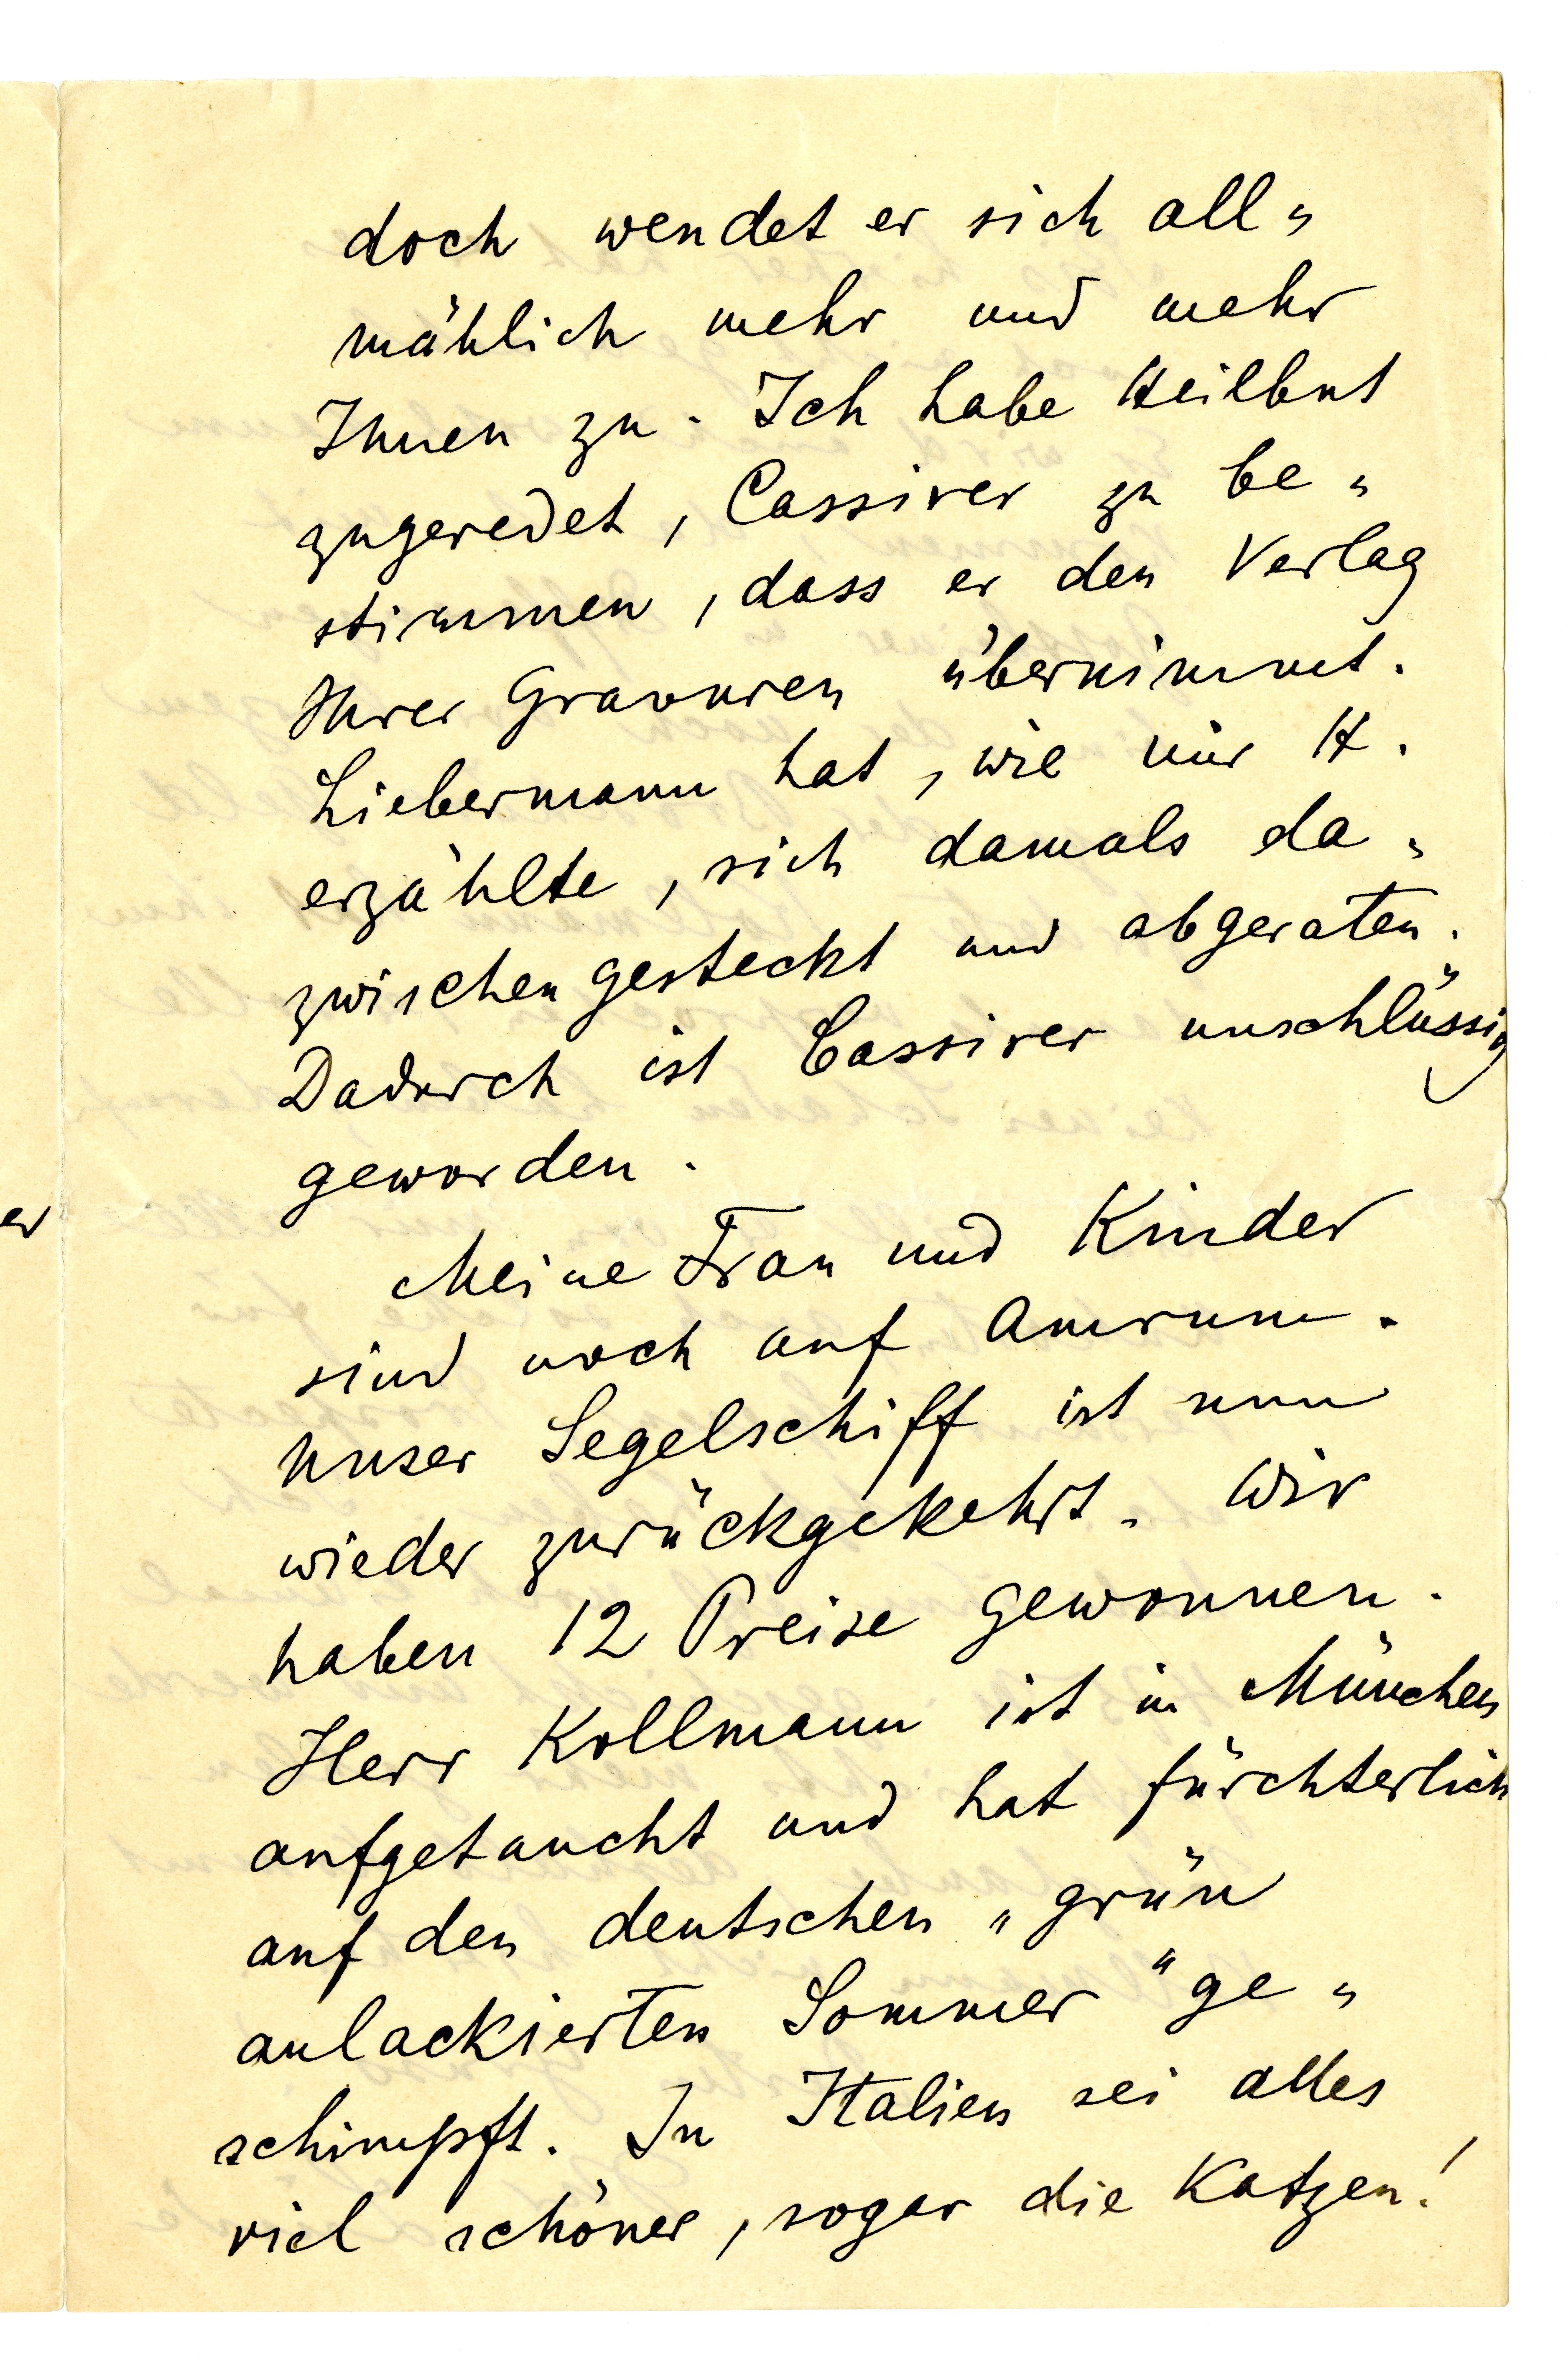 doch wendet er sich all„
mählich mehr und mehr
Ihnen zu. Ich habe Heilbut
zugeredet, Cassirer zu be„
stimmen, dass er den Verlag
Ihrer Gravuren übernimmt.
Liebermann hat, wie mir H.
erzählte, sich damals da„
zwischengesteckt und abgeraten.
Dadurch ist Cassirer unschlüssig
geworden.
er
Meine Frau und Kinder
sind noch auf Amrum.
Unser Segelschiff ist nun
wieder zurückgekehrt. Wir
haben 12 Preise gewonnen.
Herr Kollmann ist in München
aufgetaucht und hat fürchterlich
auf den deutschen „grün
anlackierten Sommer" ge„
schimpft. In Italien sei alles
viel schöner, sogar die Katzen!